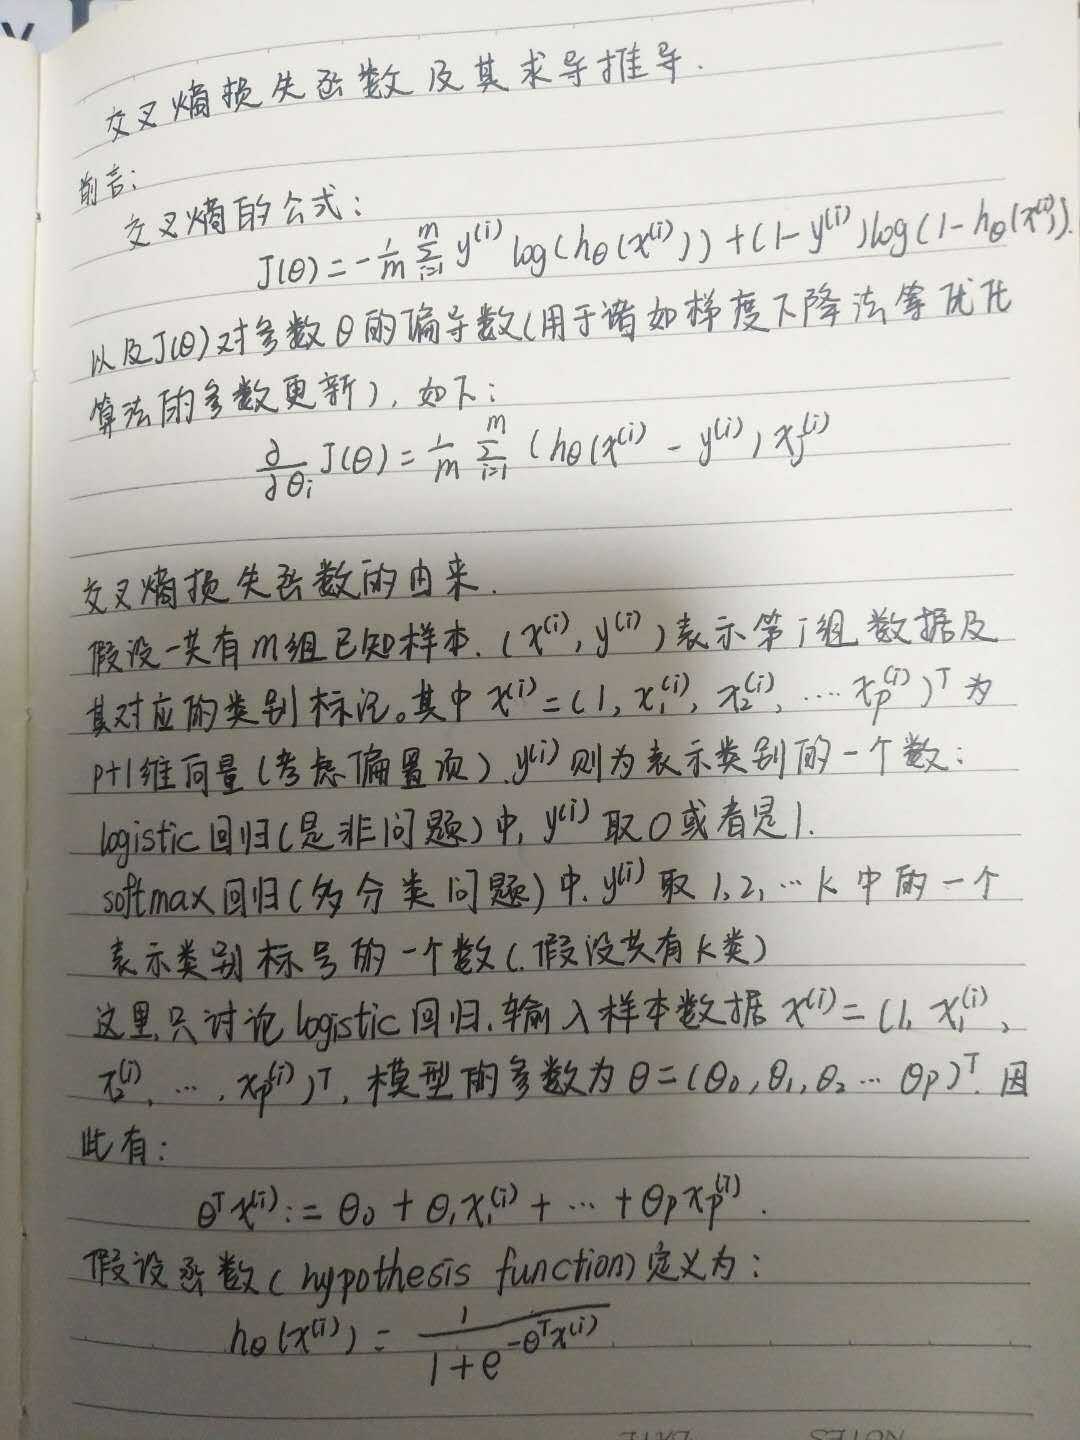 交叉熵损失函数及其求导推导.
前言:
交叉熵的公式:
J(θ)=-1/m ∑_{i=1}^{m} y^{(i)} log(h_θ(x^{(i)}))+(1-y^{(i)})log(1-h_θ(x^{(i)})).
以及J(θ)对参数θ的偏导数(用于诸如梯度下降法等优化
算法的参数更新),如下:
∂/∂θ_i J(θ)=1/m ∑_{i=1}^{m} (h_θ(x^{(i)}-y^{(i)}) x_j^{(i)}
交叉熵损失函数的由来.
假设一共有m组已知样本.(x^{(i)},y^{(i)})表示第i组数据及
其对应的类别标记。其中x^{(i)}=(1,x_1^{(i)},x_2^{(i)},....x_p^{(i)})^T为
p+1维向量(考虑偏置项).y^{(i)}则为表示类别的一个数:
logistic回归(是非问题)中,y^{(i)}取0或者是1.
softmax回归(多分类问题)中.y^{(i)}取1,2,…k中的一个
表示类别标号的一个数(.假设共有k类)
这里,只讨论logistic回归,输入样本数据x^{(i)}=(1,x_1^{(i)},
x_2^{(i)},…,x_p^{(i)})^T,模型的参数为θ=(θ_0,θ_1,θ_2…θ_p)^T.因
此有:
θ^T x^{(i)}:=θ_0+θ_1x_1^{(i)}+…+θ_px_p^{(i)}.
假设函数(hypothesis function)定义为:
h_θ(x^{(i)})=1/(1+e^{-θ^T x^{(i)}})